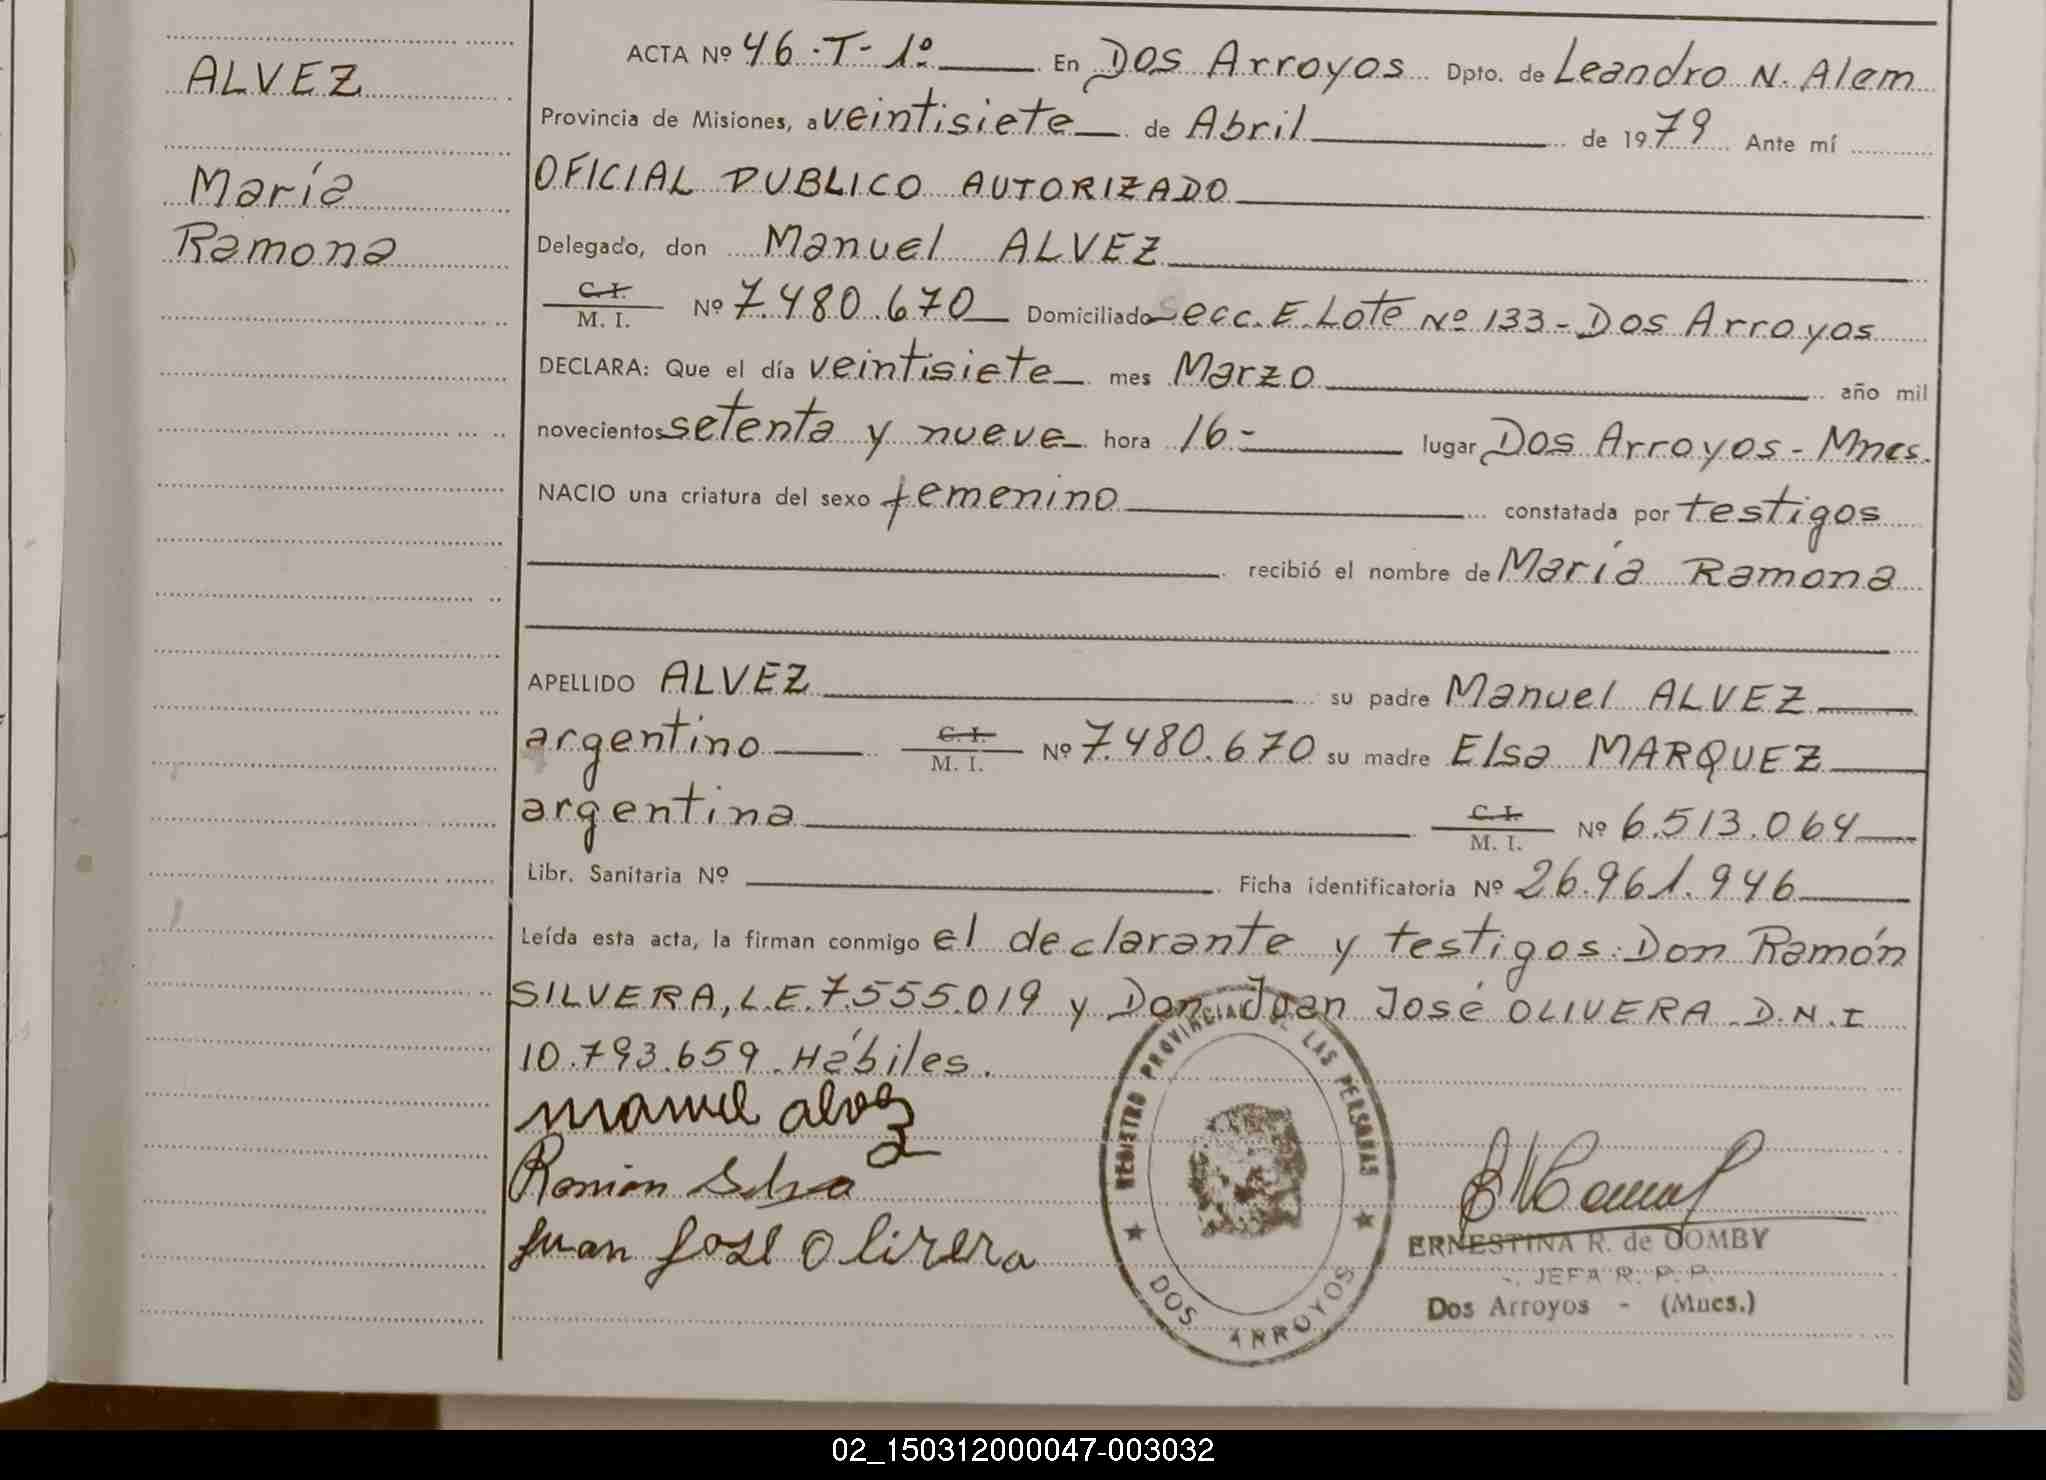 ALVEZ
María
Ramona
ACTA Nº 46.-T- 1º. En Dos Arroyos Dpto. de Leandro N. Alem
Provincia de Misiones, a veintisiete de Abril de 1979 Ante mí
OFICIAL PUBLICO AUTORIZADO
Delegado, don Manuel ALVEZ
C. I.
M. I. Nº 7.480.670 Domiciliado Secc. E. Lote Nº 133 - Dos Arroyos
DECLARA: Que el día veintisiete mes Marzo año mil
novecientos setenta y nueve hora 16- lugar Dos Arroyos - Mnes.
NACIO una criatura del sexo femenino constatada por testigos
recibió el nombre de María Ramona
APELLIDO ALVEZ su padre Manuel ALVEZ
argentino C. I. M. I. Nº 7.480.670 su madre Elsa MARQUEZ
argentina C. I. M. I. Nº 6.513.064
Libr. Sanitaria Nº Ficha identificatoria Nº 26.961.946
Leída esta acta, la firman conmigo el declarante y testigos: Don Ramón
SILVERA, L.E. 7.555.019 y Don Juan José OLIVERA D.N.I
10.793.659. Hábiles.
manuel alvez
Ramón
Juan José Olivera
REGISTRO PROVINCIAL DE LAS PERSONAS
DOS ARROYOS
ERNESTINA R. de DOMBY
JEFA R. P. P.
Dos Arroyos - (Mnes.)
02_150312000047-003032